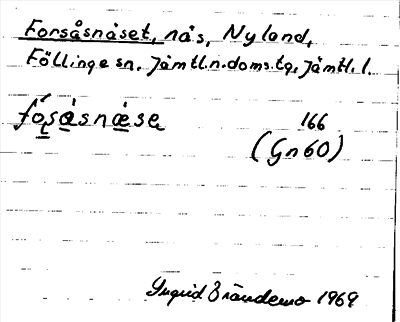 Forsåsnäset, näs, Nyland,
Föllinge sn. Jämtl.n.doms.tg. Jämtl. l.
fo̱såsnæse
166
(Gn 60)
Ingrid Brändemo 1969